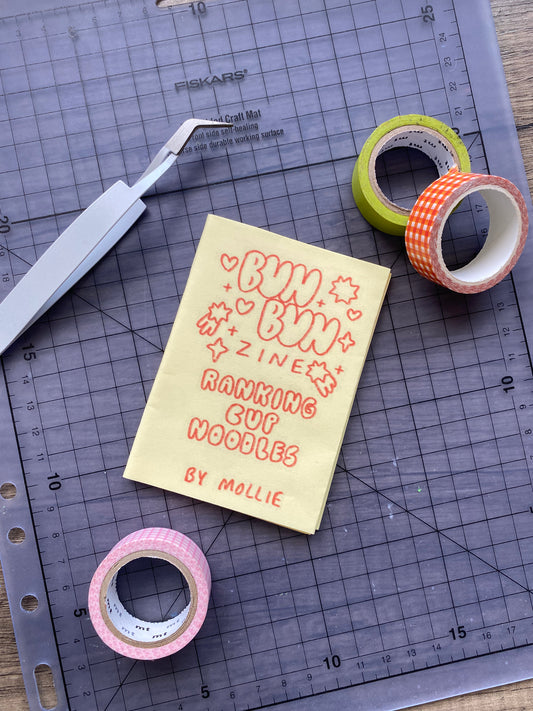 10
25
FISKARS®
Craft Mat
side self-healing
side durable working surface
20
20
BUN
BUN
ZINE
RANKING
CUP
NOODLES
BY MOLLIE
15
10
5
15
10
5
mt